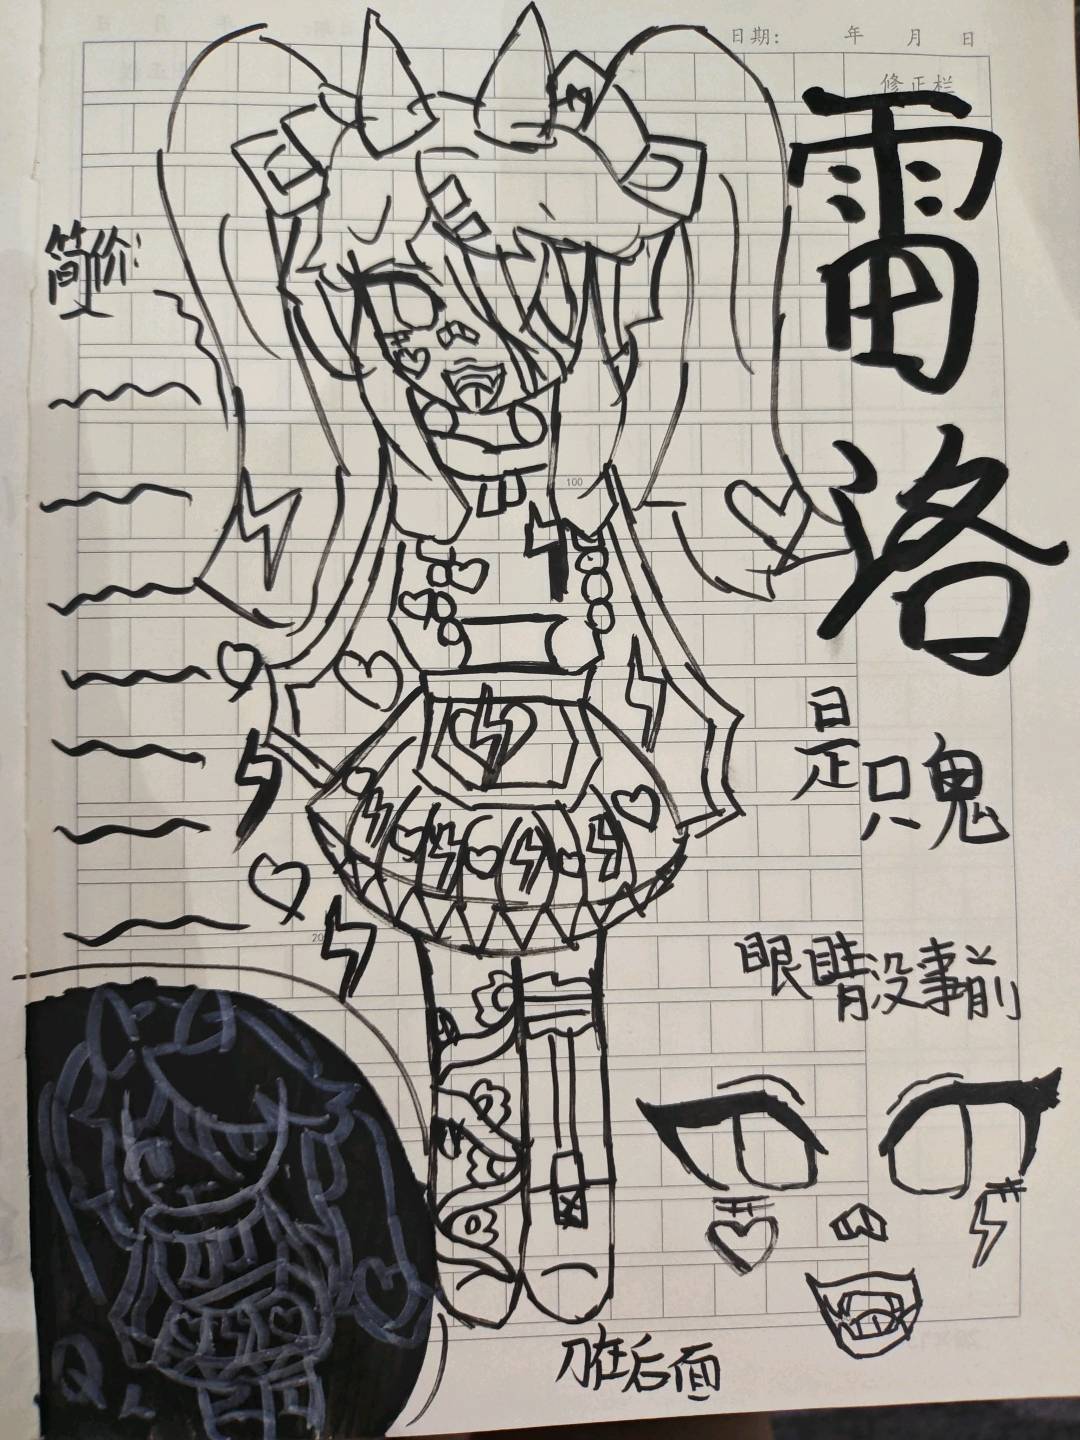 日期： 年 月 日
修正栏
雷洛
简介：
是只鬼
100
眼睛没事前
20
刀在后面